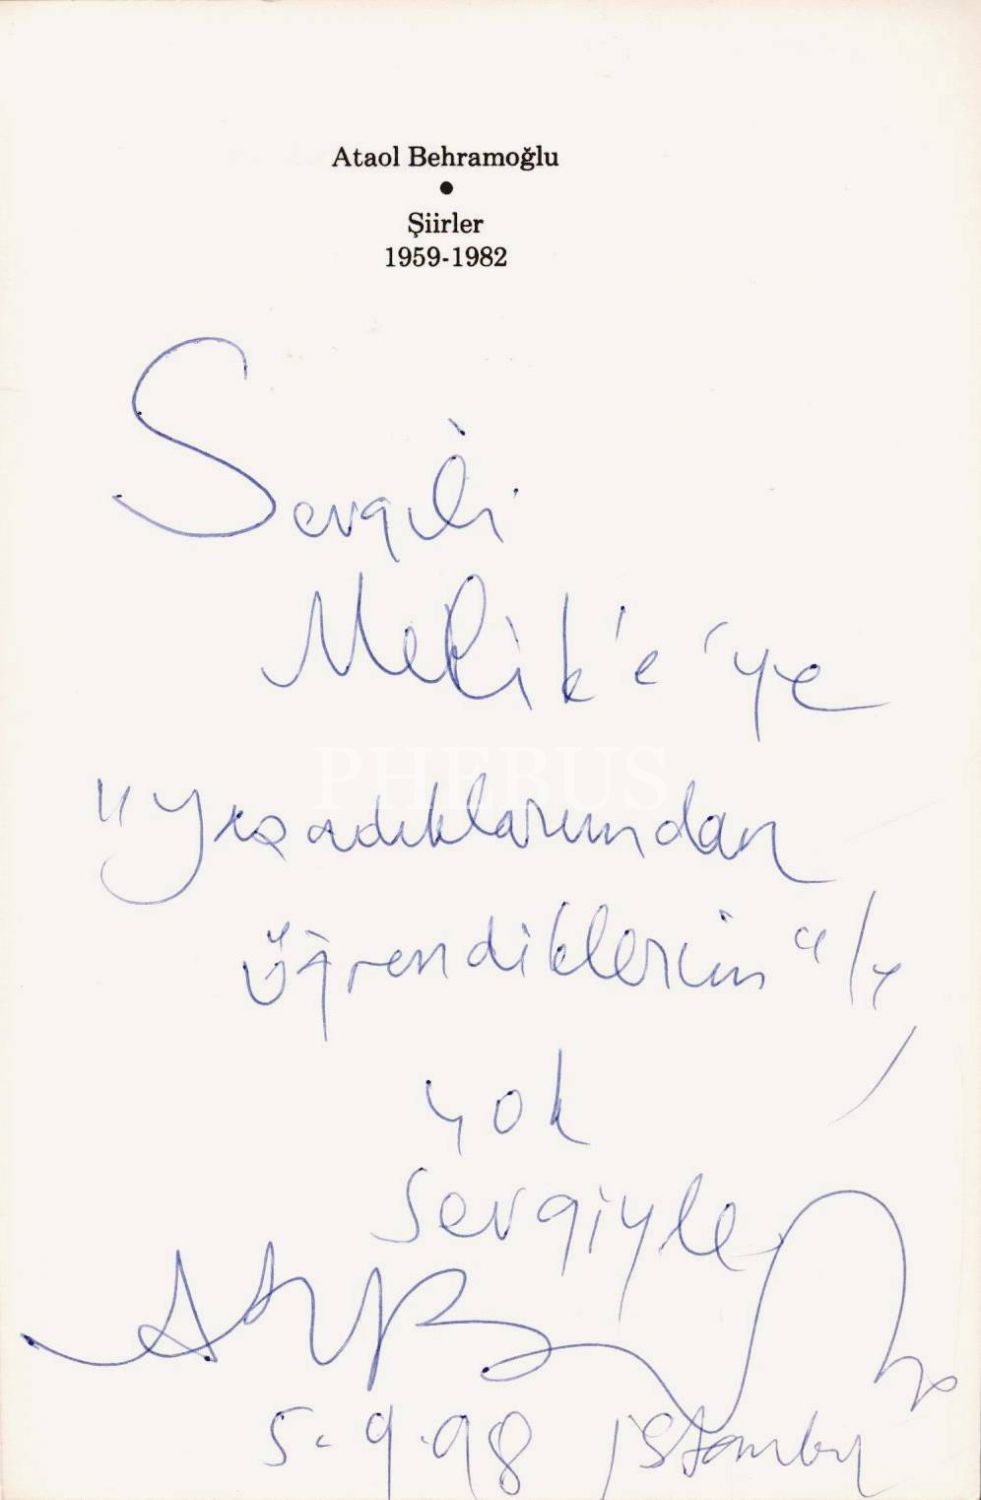 Ataol Behramoğlu
•
Şiirler
1959-1982
Sevgili
Melike'ye
PHEBUS
"Yaşadıklarımdan
öğrendiklerim"
çok
sevgiyle
5.9.98 İstanbul